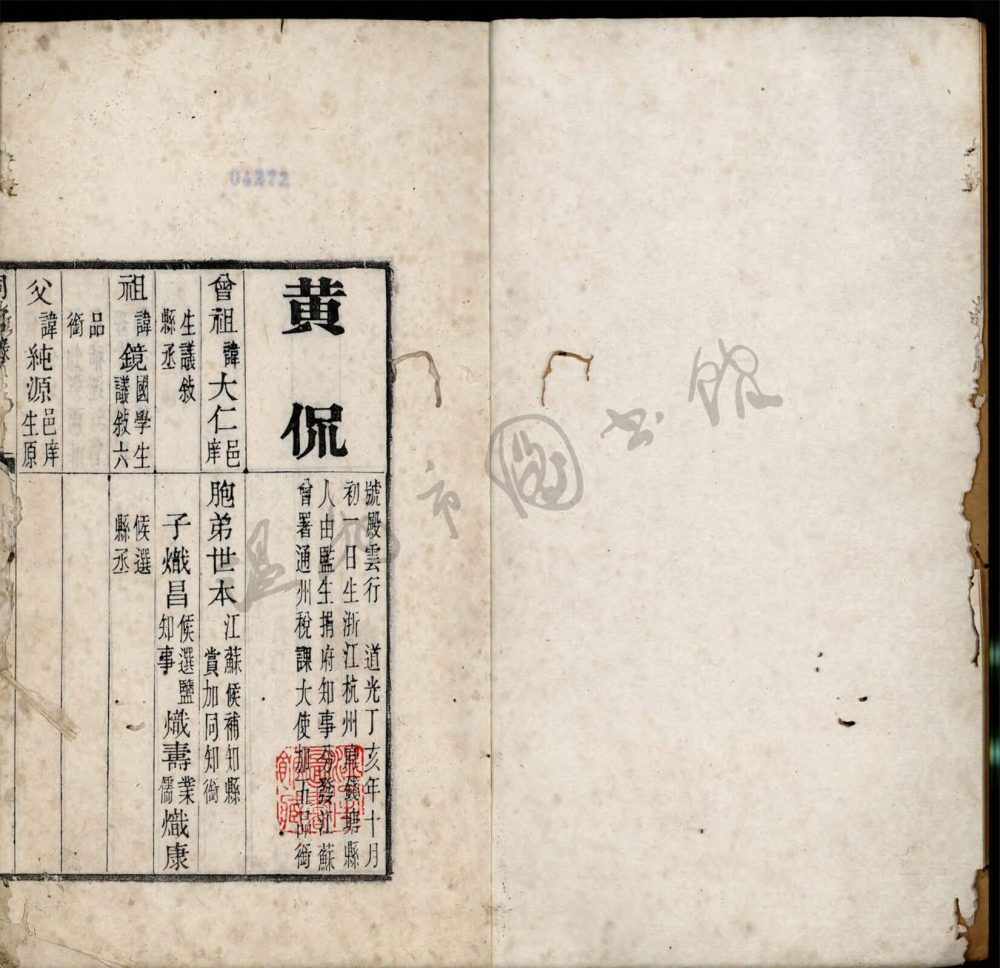 04272
黃侃
號殿雲行 道光丁亥年十月
初一日生浙江杭州府錢塘縣
人由監生捐府知事分發江蘇
曾署通州稅課大使加五品銜
曾祖諱大仁邑庠
生議敘
縣丞
胞弟世本江蘇候補知縣
賞加同知銜
祖諱鏡國學生
議敘六
品
銜
子熾昌候選鹽
知事
熾壽業
儒
熾康
候選
縣丞
父諱純源邑庠
生原
溫州市圖書館